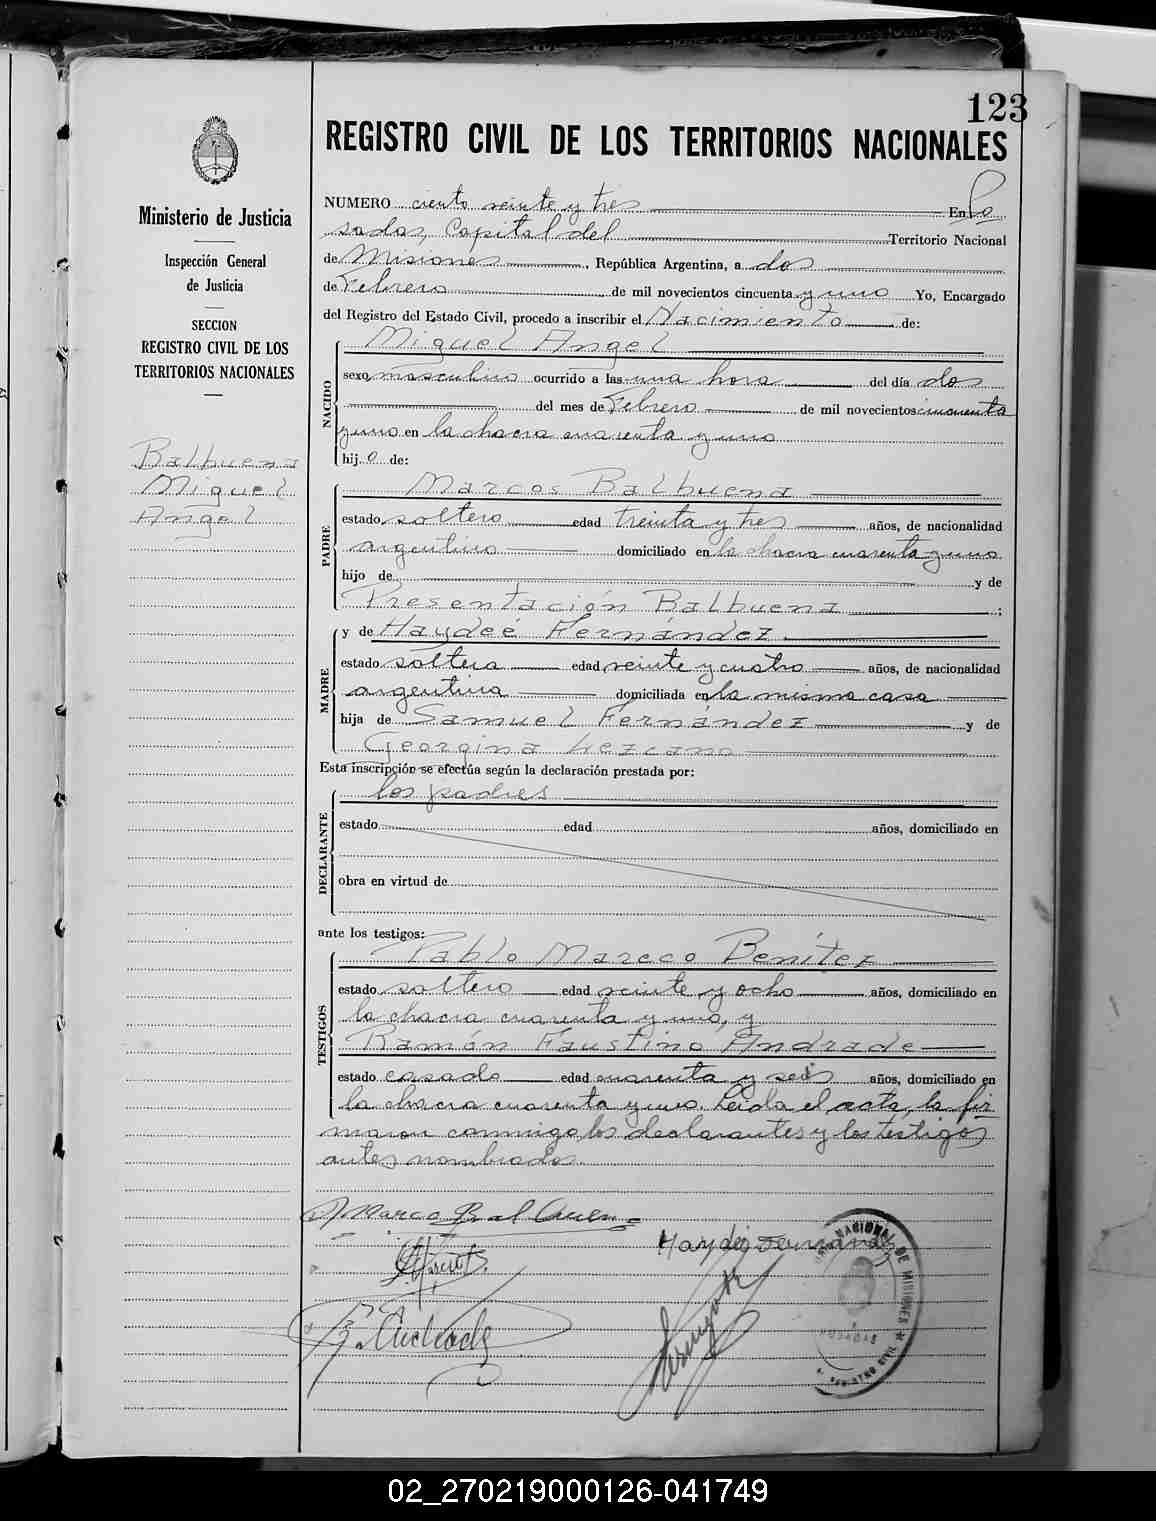 123
REGISTRO CIVIL DE LOS TERRITORIOS NACIONALES
Ministerio de Justicia
Inspección General
de Justicia
SECCION
REGISTRO CIVIL DE LOS
TERRITORIOS NACIONALES
Balbuena
Miguel
Angel
NUMERO ciento veinte y tres En Po
sadas, Capital del Territorio Nacional
de Misiones, República Argentina, a dos
de Febrero de mil novecientos cincuenta y uno Yo, Encargado
del Registro del Estado Civil, procedo a inscribir el Nacimiento de:
Miguel Angel
NACIDO
sexo masculino ocurrido a las una hora del día dos
del mes de Febrero de mil novecientos cincuenta
y uno en la chacra cuarenta y uno
hijo de:
Marcos Balbuena
PADRE
estado soltero edad treinta y tres años, de nacionalidad
argentino domiciliado en la chacra cuarenta y uno
hijo de y de
Presentación Balbuena ;
y de Haydeé Fernández
MADRE
estado soltera edad veinte y cuatro años, de nacionalidad
argentina domiciliada en la misma casa
hija de Samuel Fernández y de
Georgina Lezcano
Esta inscripción se efectúa según la declaración prestada por:
los padres
DECLARANTE
estado edad años, domiciliado en
obra en virtud de
ante los testigos:
Pablo Mareco Benítez
TESTIGOS
estado soltero edad veinte y ocho años, domiciliado en
la chacra cuarenta y uno, y
Ramón Faustino Andrade
estado casado edad cuarenta y seis años, domiciliado en
la chacra cuarenta y uno. Leída el acta, la fir
maron conmigo los declarantes y los testigos
antes nombrados.
Marco Balbuena
Haydeé Fernández
R. F. Andrade
NACIONAL DE MISIONES
POSADAS
REGISTRO CIVIL
02_270219000126-041749